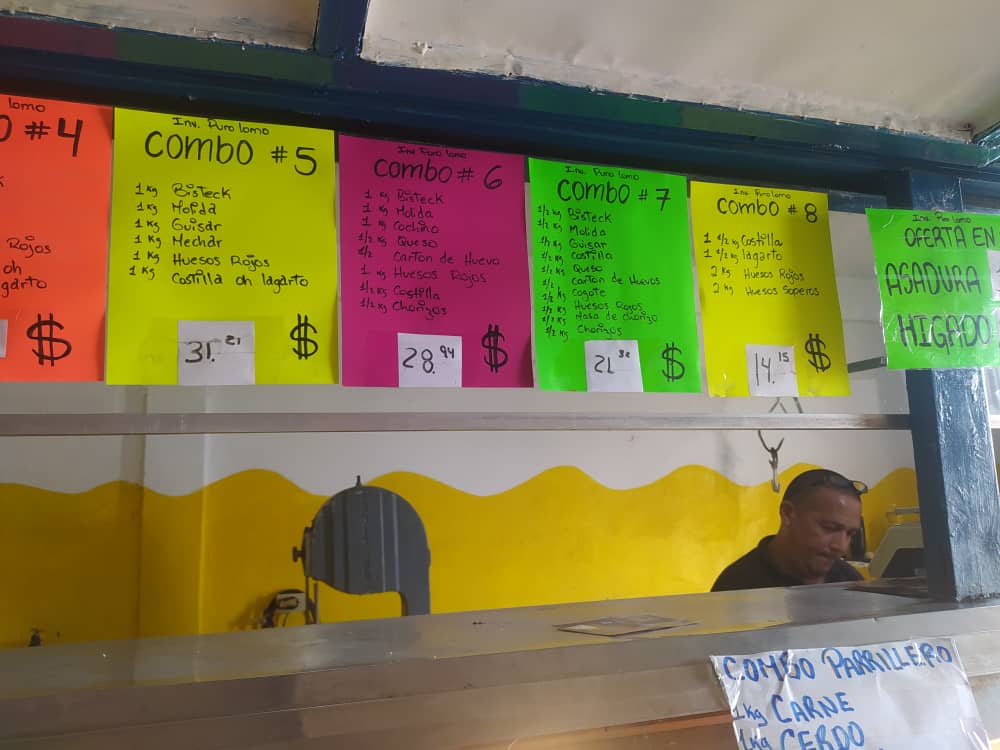 lomo
#4
Rojos
oh
garto
$
Inv. Puro lomo
COMBO #5
1 Kg Bisteck
1 Kg Molida
1 Kg Guisar
1 Kg Mechar
1 Kg Huesos Rojos
1 Kg Costilla oh lagarto
31.21 $
Inv. Puro lomo
COMBO # 6
1 Kg Bisteck
1 Kg Molida
1 Kg Cochino
1/2 Kg Queso
1/2 Carton de Huevo
1 Kg Huesos Rojos
1/2 Kg Costilla
1/2 Kg Chorizos
28.94 $
Inv. Puro lomo
COMBO # 7
1/2 Kg Bisteck
1/2 Kg Molida
1/2 Kg Guisar
1/2 Kg Costilla
1/2 Kg Queso
1/2 Carton de Huevos
1/2 Kg Cogote
1/2 Kg Huesos Rojos
1/2 Kg Masa de chorizo
1/2 Kg Chorizos
21 $
Inv. Puro lomo
COMBO # 8
1 1/2 Kg Costilla
1 1/2 Kg lagarto
2 Kg Huesos Rojos
2 Kg Huesos Soperos
14.15 $
Inv. Puro lomo
OFERTA EN
ASADURA
HIGADO
COMBO PARRILLERO
1Kg CARNE
1Kg CERDO